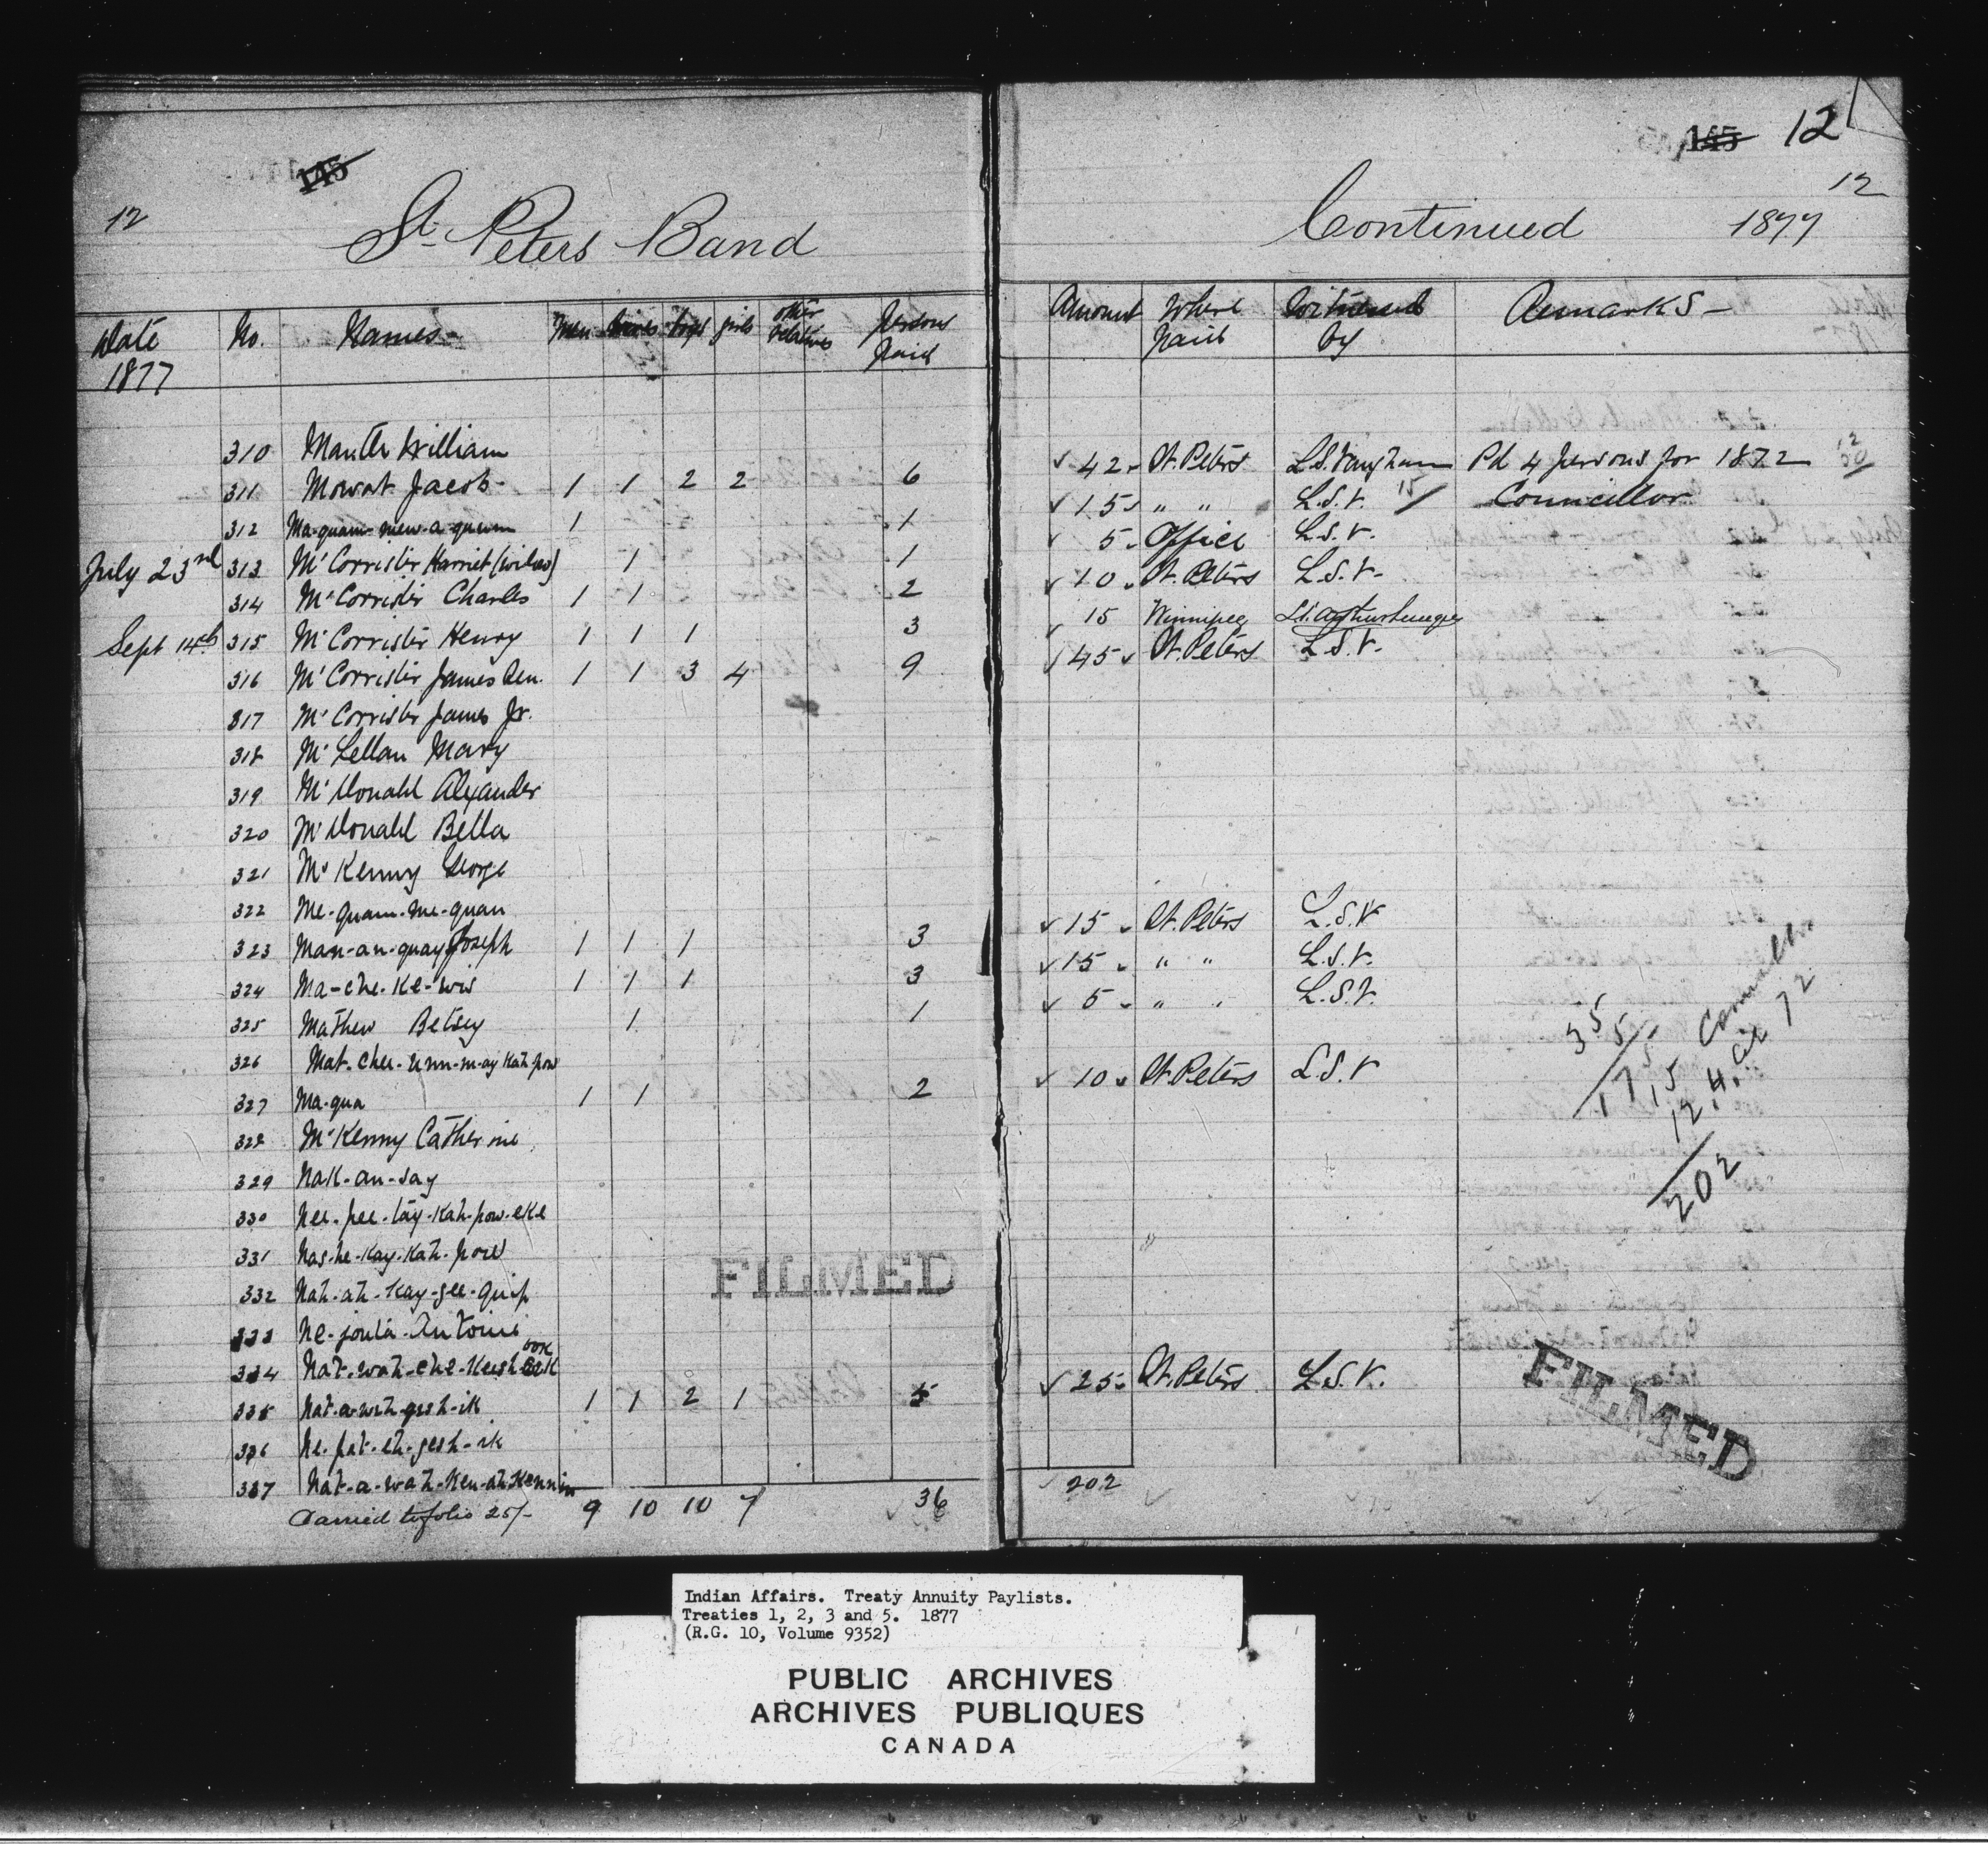 145
12
St. Peters Band
Date 1877 No. Names - Men wives boys girls other relatives Persons Paid
310 William
311 Mowat Jacob - 1 1 2 2 6
312 Ma-quam-mew-a-quum 1 1
July 23rd 313 McCorrister Harriet (widow) 1 1
314 McCorrister Charles 1 1 2
Sept 14th 315 McCorrister Henry 1 1 1 3
316 McCorrister James Sen. 1 1 3 4 9
317 McCorrister James Jr.
318 McLellan Mary
319 McDonald Alexander
320 McDonald Bella
321 McKenny George
322 Me-quam-me-quan
323 Man-an-quay Joseph 1 1 1 3
324 Ma-che-ke-wis 1 1 1 3
325 Mathew Betsey 1 1
326 Mat-chee-
327 Ma-qua 1 1 2
328 McKenny Catherine
329 Nak-an-say
330 Nee-pee-tay-kah-pow-eke
331 Nas-he-kay-kah-pow
332 Nah-ah-kay-gee-
333 Antoine
334 Nat-wah-che-keesh
335 Nat-a-weh-gesh-ik 1 1 2 1 5
336 Ne-pat-eh-gesh-ik
337 Nat-a-wah-
Carried to folio 25/- 9 10 10 7 36
FILMED
145 12
12
Continued 1877
Amount Where Paid Witnessed by Remarks -
42 St. Peters L.S. Vaughan Pd 4 persons for 1872 12
30
15 " " L.S.V. 15/ Councillor
5 Office L.S.V.
10 St. Peters L.S.V.
15 Winnipeg
45 St. Peters L.S.V.
15 St. Peters L.S.V
15 " " L.S.V.
5 " " L.S.V.
10 St. Peters L.S.V
25 St. Peters L.S.V.
202
35
5
175
15 Councillor
12
202
FILMED
Indian Affairs. Treaty Annuity Paylists.
Treaties 1, 2, 3 and 5. 1877
(R.G. 10, Volume 9352)
PUBLIC ARCHIVES
ARCHIVES PUBLIQUES
CANADA